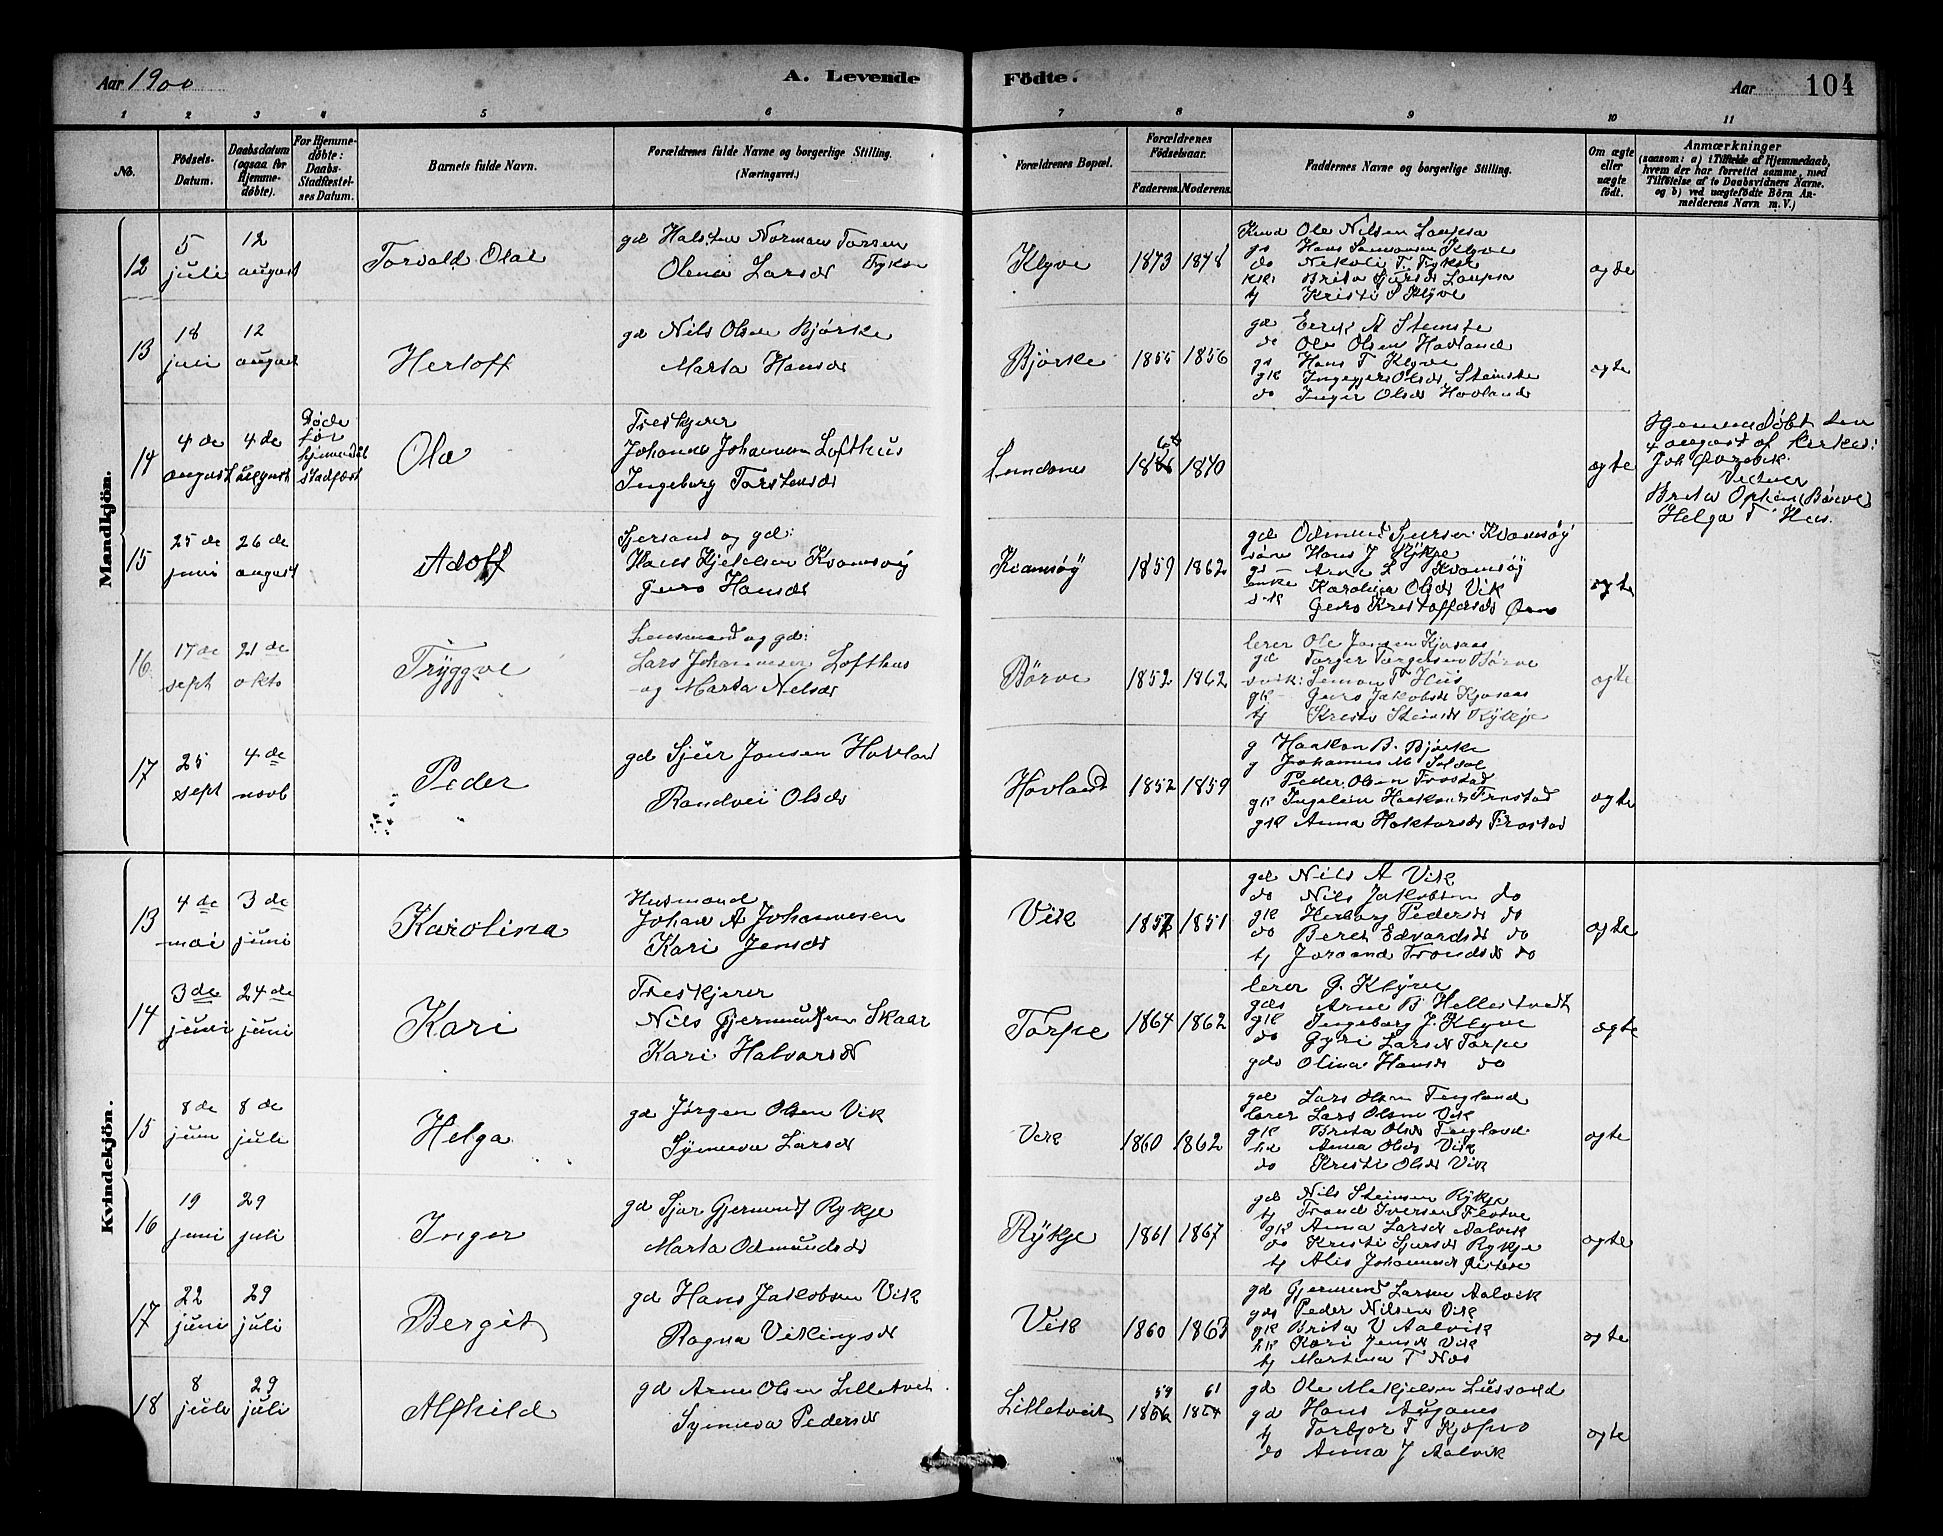 Aar 1900
A. Levende
Födte.
Aar
104
1 2 3 4 5 6 7 8 9 10 11
No.
Födsels-Datum.
Daabsdatum (ogsaa for Hjemmedøbte).
For Hjemmedøbte: Daabs-Stadfæstelses Datum.
Barnets fulde Navn.
Forældrenes fulde Navne og borgerlige Stilling.
(Næringsvei.)
Forældrenes Bopæl.
Forældrenes Födselsaar.
Faderens. Moderens.
Faddernes Navne og borgerlige Stilling.
Om ægte eller uægte födt.
Anmærkninger
(saasom: a) i Tilfælde af Hjemmedaab, hvem der har forrettet samme, med Tilföielse af to Daabsvidners Navne. og b) ved uægtefödte Börn Anmelderens Navn m. V.)
Mandkjön.
12
5 juli
12 august
Torvald Olai
gd Halsten Norman Torsen
Olena Larsdr
Klyve
1873 1878
Ole Nilsen Laupsa
gs Hans Klyve
do Nikoli T.
Brita Sjursdr Laupsa
tj Kristi S Klyve
ægte
13
18 juli
12 august
Herloff
gd Nils Olsen Bjørke
Marta Hansdr
Bjørke
1855 1856
gd Eerik A Steinstø
do Ole Olsen Hovland
gs Hans T Klyve
gk Ingegjerd Olsdr Steinstø
do Inger Olsdr Hovland
ægte
14
4 de august
4 de august
Døde før hjemmedåb stadfæst
Ola
Treskjerer
Johannes Johannesen Lofthus
Ingeborg Torstensdr
1840
ægte
Hjemmedøbt den
4 august af kirkes:
Joh Øvrebik.
Vidner
Brita Opheim (Børve)
Helga T Hus.
15
25 de juni
26 de august
Adolf
og gd:
Hans Kjetelsen Kvamsøy
Guro Hansdr
Kvamsøy
1859 1862
gd Odmund Sjursen Kvamsøy
søn Hans J Rykje
gs Arne L Kvamsøy
enke Karolina Olsdr Vik
Guro Kristoffersdr
ægte
16
17 de sept
21 de okto
Tryggve
Lensmand og gd:
Lars Johannesen Lofthus
og Marta Nelsdr
Børve
1852 1862
lerer Ole Jonsen Kjosaas
gd Torger Torgersen Børve
Simon T Hus
gk Guro Jakobsdr Kjosaas
tj Kristi Steinsdr Rykje
ægte
17
25 sept
4 de novb
Peder
gd Sjur Jonsen Hovland
Randvei Olsdr
Hovland
1852 1859
g Haakon B. Bjørke
g Johannes M
Peder Olsen Frostad
gk Haakonsdr Frostad
gk Anna Hektorsdr Frostad
ægte
Kvindekjön.
13
4 de mai
3 de juni
Karolina
Husmand
Johan A Johannesen
Kari Jensdr
Vik
1851
gd Nils A Vik
do Nils Jakobsen do
gk Herborg Pedersdr do
do Beret Edvardsdr do
tj Joraand Trondsdr do
ægte
14
3 de juni
24 de juni
Kari
Treskjerer
Nils Gjermundsen Skaar
Kari Halvorsdr
Torpe
1864 1862
lerer G. Klyve
gds Arne B Hellestvedt
gk Ingeborg J. Klyve
do Gyri Larsdr Torpe
gds Olina Hansdr do
ægte
15
8 de juni
8 de juli
Helga
gd Jørgen Olsen Vik
Synneva Larsdr
Vik
1860 1862
gd Lars Olsen Teigland
lerer Lars Olsen Vik
gk Brita Olsdr Teigland
Anna Olsdr Vik
do Kristi Olsdr Vik
ægte
16
19 juni
29 juli
Inger
gd Sjur Gjermunds Rykje
Marta Odmundsdr
Rykje
1861 1867
gd Nils Steinsen Rykje
tj Trond Iversen
gk Anna Larsdr Aalvik
do Kristi Sjursdr Rykje
tj Alis Johannesdr
ægte
17
22 juni
29 juli
Bergit
gd Hans Jakobsen Vik
Ragna Vikingsdr
Vik
1860 1863
gd Gjermund Larsen Aalvik
gds Peder Nilsen Vik
gk Brita V Aalvik
Kari Jensdr Vik
tj Martina T Næs
ægte
18
8 juli
29 juli
Alfhild
gd Arne Olsen Lilletveit
Synneva Pedersdr
Lilletveit
59 61
1856 1864
gd Ole Mikjelsen Lussand
gd Hans Augenes
tj Torbjor T
do Anna J Aalvik
ægte